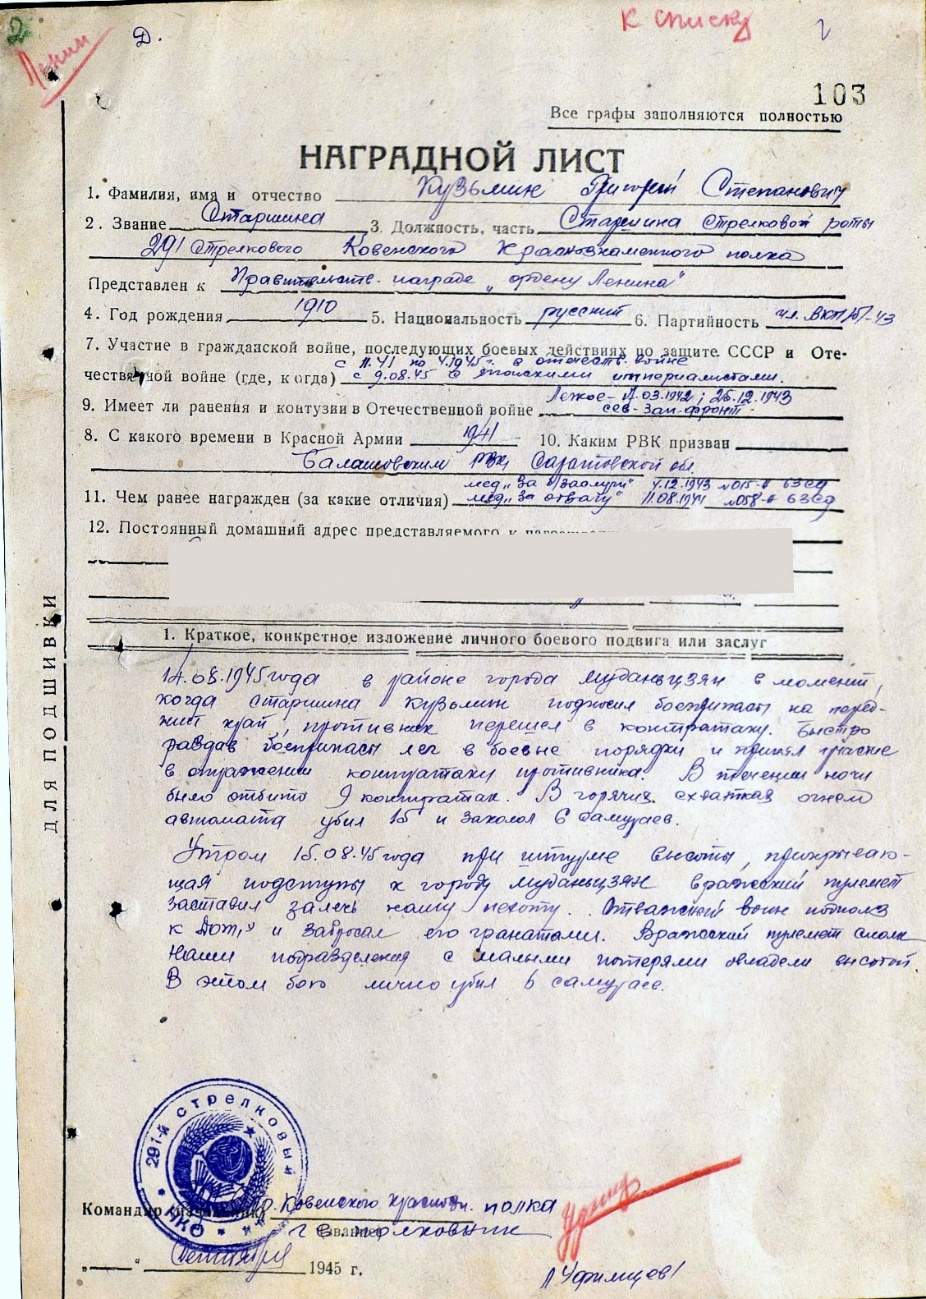 2
Ленин
Д.
К списку
103
Все графы заполняются полностью
НАГРАДНОЙ ЛИСТ
1. Фамилия, имя и отчество Кузьмин Григорий Степанович
2. Звание Старшина 3. Должность, часть Старшина стрелковой роты
291 стрелкового Ковенского Краснознаменного полка
Представлен к Правительств. награде „ордену Ленина"
4. Год рождения 1910 5. Национальность русский 6. Партийность чл. ВКП/б/-43
7. Участие в гражданской войне, последующих боевых действиях по защите СССР и Оте-
с 11.41 по 4.1945г. в отечеств. войне
чественной войне (где, когда) с 9.08.45 с японскими империалистами.
Легкое - 03.1942; 25.12.1943
9. Имеет ли ранения и контузии в Отечественной войне сев-зап. фронт.
8. С какого времени в Красной Армии 1941 10. Каким РВК призван
Балашовским РВК, Саратовской обл.
мед. „За 4.12.1943 №015-н 63сд
11. Чем ранее награжден (за какие отличия) мед. „За отвагу" 11.08.1941 №058-н 63сд
12. Постоянный домашний адрес представляемого к
1. Краткое, конкретное изложение личного боевого подвига или заслуг
14.08.1945 года в районе города Муданьцзян в момент,
когда старшина Кузьмин подносил боеприпасы на перед-
ний край, противник перешел в контратаку. Быстро
раздав боеприпасы лег в боевые порядки и принял участие
в отражении контратаки противника. В течении ночи
было отбито 9 контратак. В горячих схватках огнем
автомата убил 15 и заколол 6 самураев.
Утром 15.08.45 года при штурме высоты, прикрываю-
щая подступы к городу Муданьцзян вражеский пулемет
заставил залечь нашу пехоту. Отважный воин подполз
к Дот'у и забросал его гранатами. Вражеский пулемет смолк
Наши подразделения с малыми потерями овладели высотой.
В этом бою лично убил 6 самураев.
ДЛЯ ПОДШИВКИ
291-й стрелковый
Командир (начальник) Ковенского Краснозн. полка
Гв. подполковник
(звание)
„ " сентября 1945 г.
/Уфимцев/